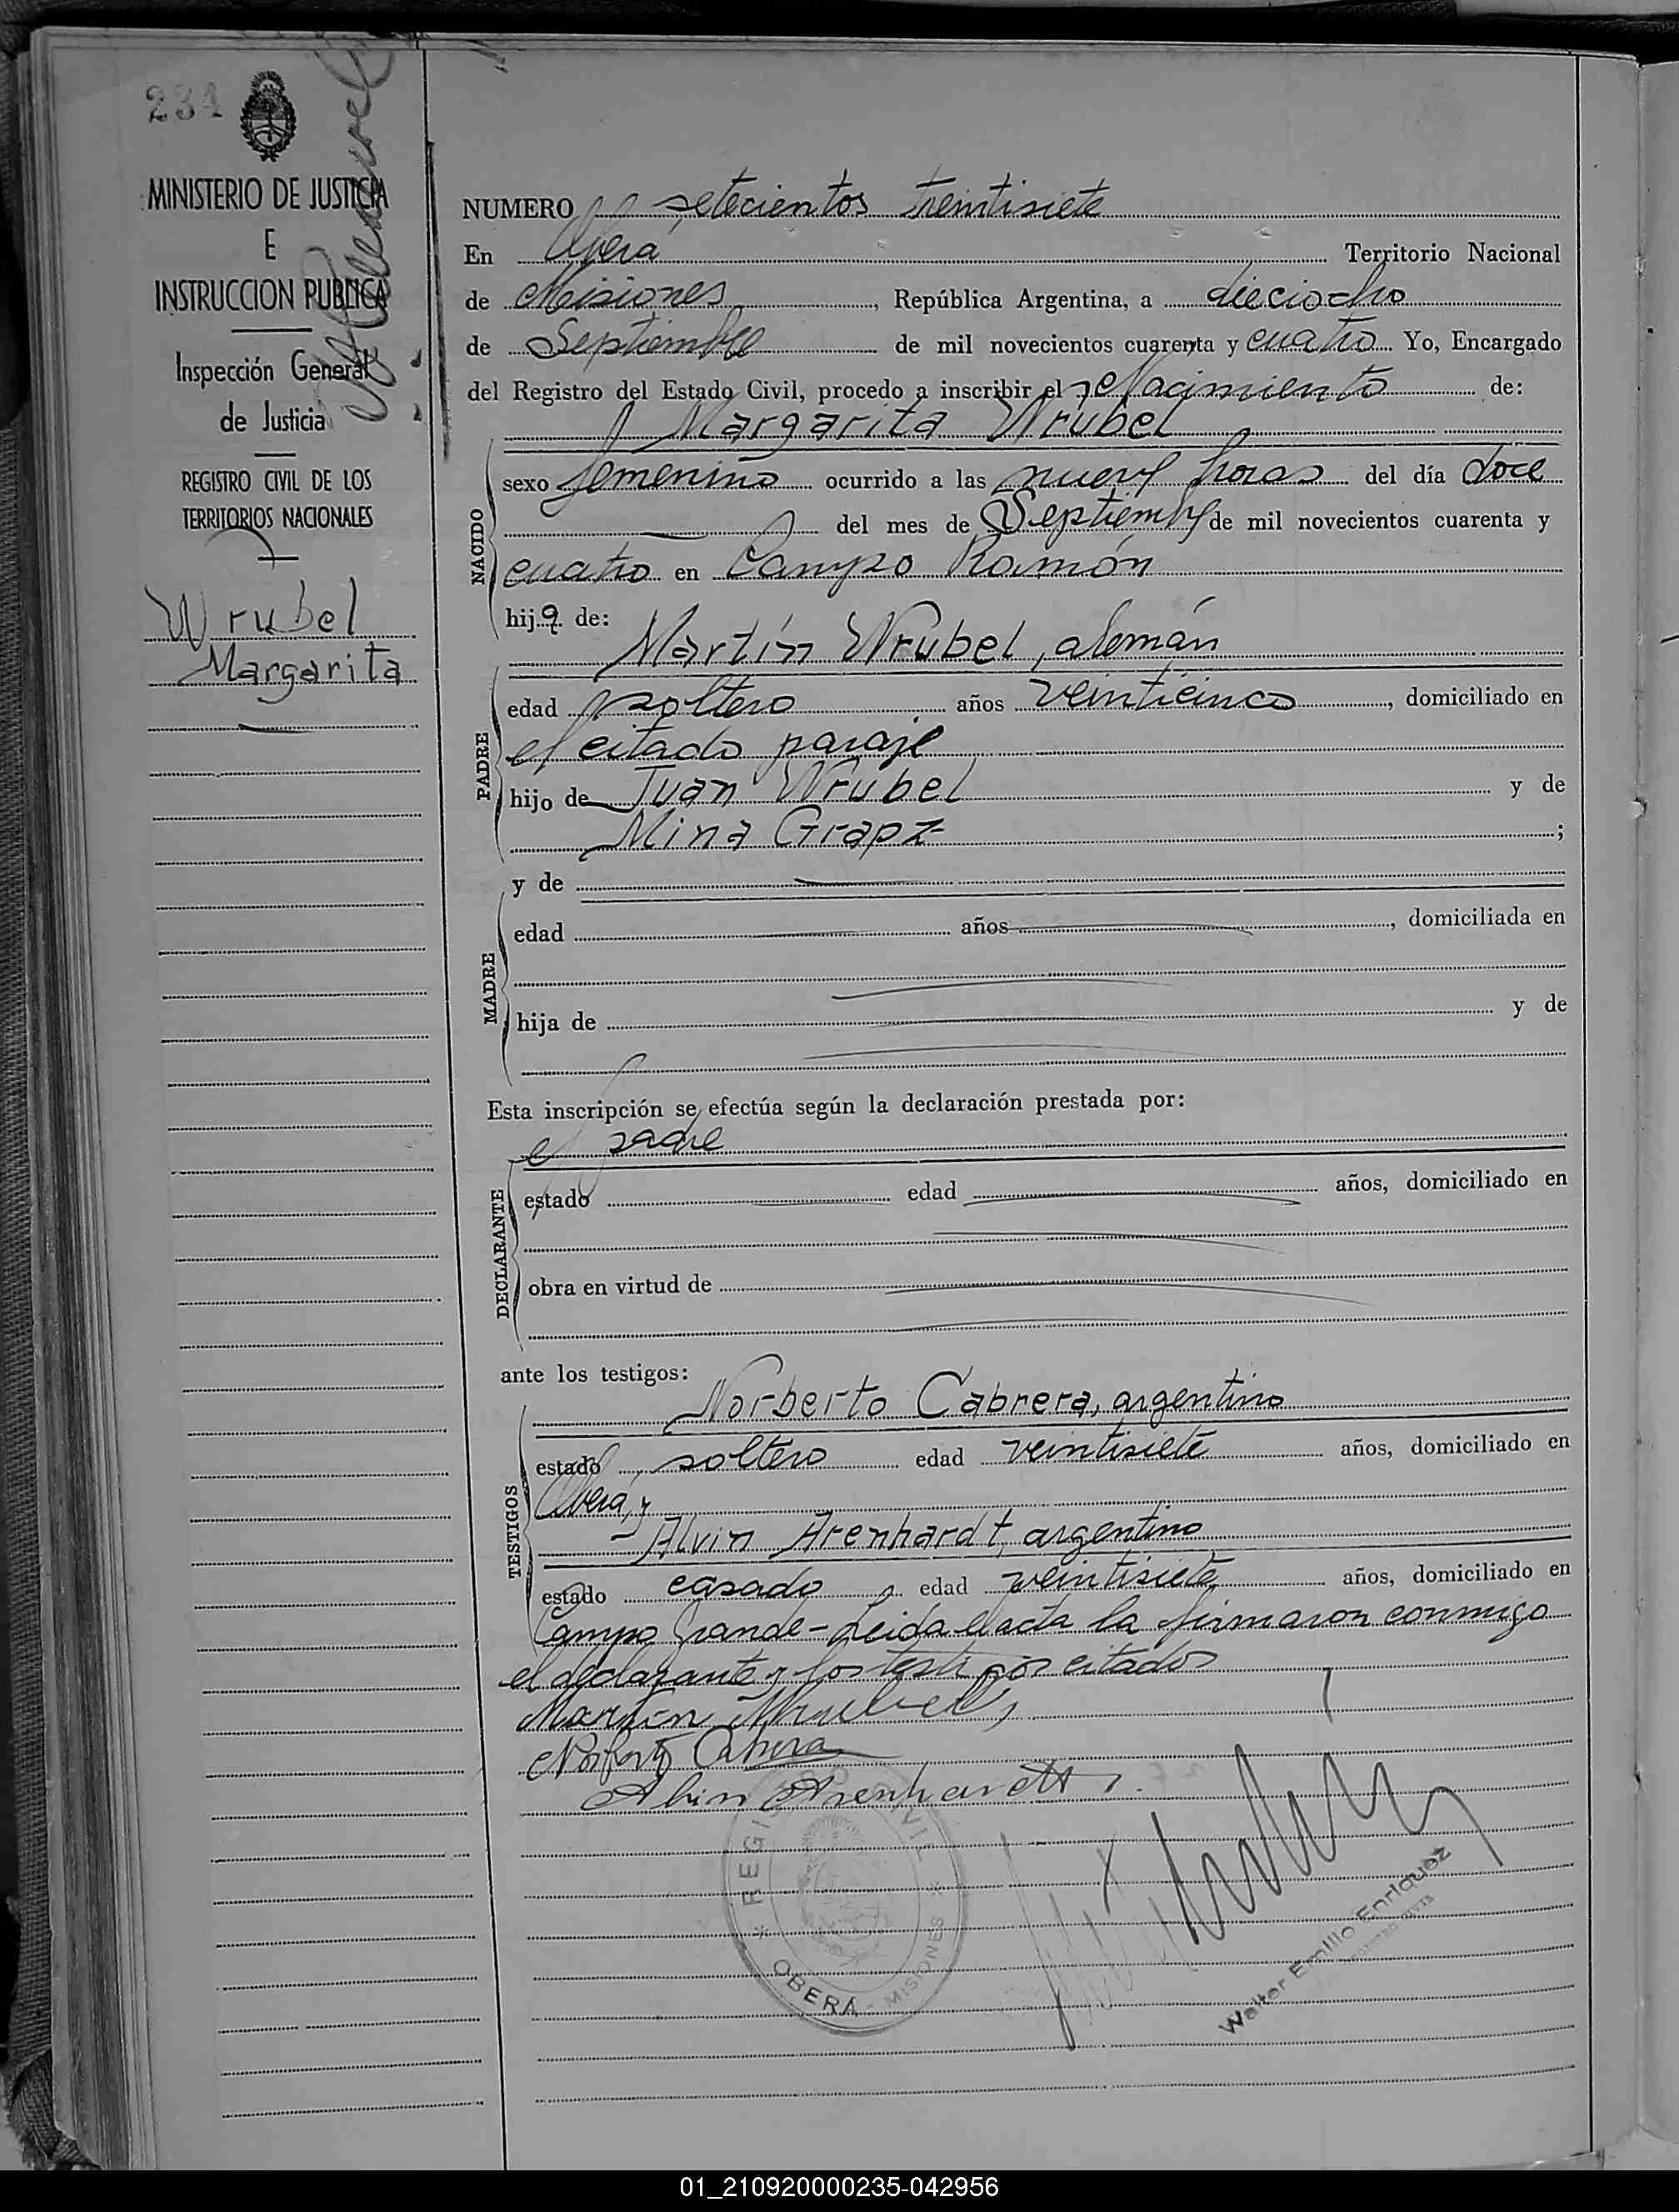 234
MINISTERIO DE JUSTICIA
E
INSTRUCCION PUBLICA
Inspección General
de Justicia
REGISTRO CIVIL DE LOS
TERRITORIOS NACIONALES
Wrubel
Margarita
NUMERO setecientos treintisiete
En Oberá Territorio Nacional
de Misiones, República Argentina, a dieciocho
de Septiembre de mil novecientos cuarenta y cuatro Yo, Encargado
del Registro del Estado Civil, procedo a inscribir el Nacimiento de:
Margarita Wrubel
NACIDO
sexo femenino ocurrido a las nueve horas del día doce
del mes de Septiembre de mil novecientos cuarenta y
cuatro en Campo Ramón
hija de:
Martín Wrubel, alemán
PADRE
edad soltero años veinticinco, domiciliado en
el citado paraje
hijo de Juan Wrubel y de
Mina Grapz;
y de
MADRE
edad años, domiciliada en
hija de y de
Esta inscripción se efectúa según la declaración prestada por:
el padre
DECLARANTE
estado edad años, domiciliado en
obra en virtud de
ante los testigos:
Norberto Cabrera, argentino
TESTIGOS
estado soltero edad veintisiete años, domiciliado en
Oberá, y
Alvin Arenhardt, argentino
estado casado, edad veintisiete años, domiciliado en
Campo Grande - Leida el acta la firmaron conmigo
el declarante y los testigos citados
Martin Wrubel
Norberto Cabrera
Alvin Arenhardt
REGISTRO CIVIL
OBERÁ - MISIONES
Walter Emilio Enriquez
01_210920000235-042956